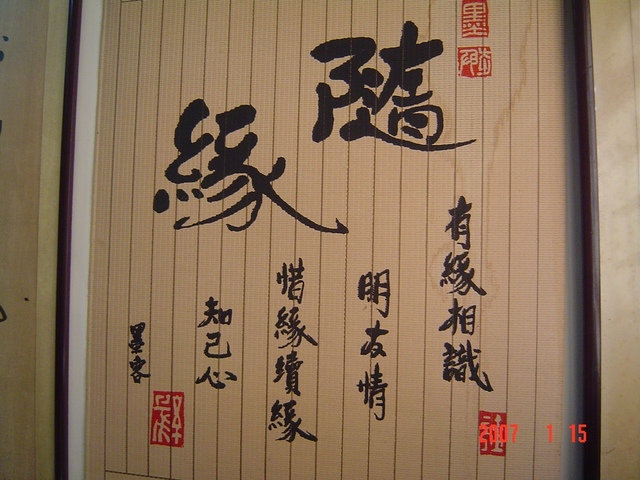 隨緣
有緣相識
明友情
惜緣續緣
知己心
墨客
2007 1 15